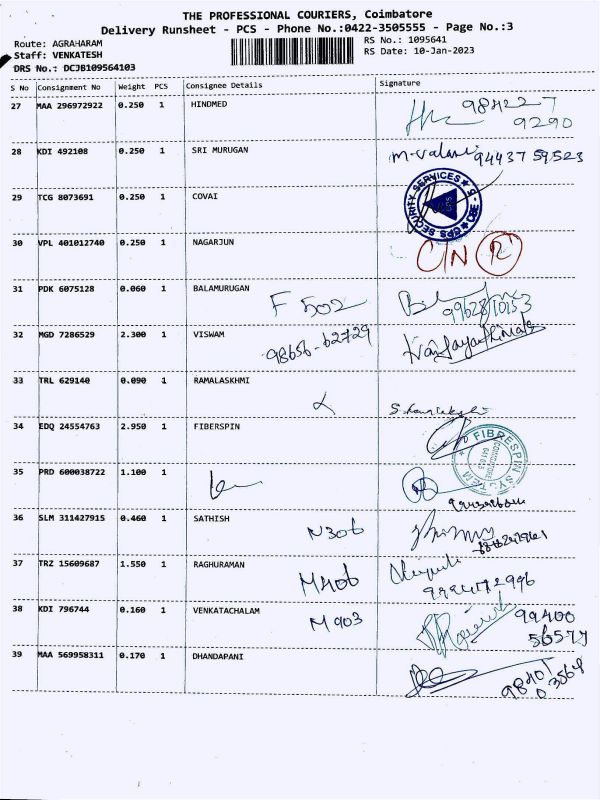 THE PROFESSIONAL COURIERS, Coimbatore
Delivery Runsheet - PCS - Phone No.:0422-3505555 - Page No.:3
Route: AGRAHARAM
RS No.: 1095641
Staff: VENKATESH
RS Date: 10-Jan-2023
DRS No.: DCJB109564103
S No Consignment No Weight PCS Consignee Details Signature
27 MAA 296972922 0.250 1 HINDMED 984227
9290
28 KDI 492108 0.250 1 SRI MURUGAN 94437 59523
29 TCG 8073691 0.250 1 COVAI
GPS SECURITY SERVICES CBE - 5
30 VPL 401012740 0.250 1 NAGARJUN C/N R
31 PDK 6075128 0.060 1 BALAMURUGAN F 502
32 MGD 7286529 2.300 1 VISWAM 98656-62729
33 TRL 629140 0.090 1 RAMALASKHMI
34 EDQ 24554763 2.950 1 FIBERSPIN
FIBRESPIN SYSTEM
35 PRD 600038722 1.100 1
36 SLM 311427915 0.460 1 SATHISH N306
37 TRZ 15609687 1.550 1 RAGHURAMAN M406
38 KDI 796744 0.160 1 VENKATACHALAM M903 99400
56577
39 MAA 569958311 0.170 1 DHANDAPANI 98401
03568